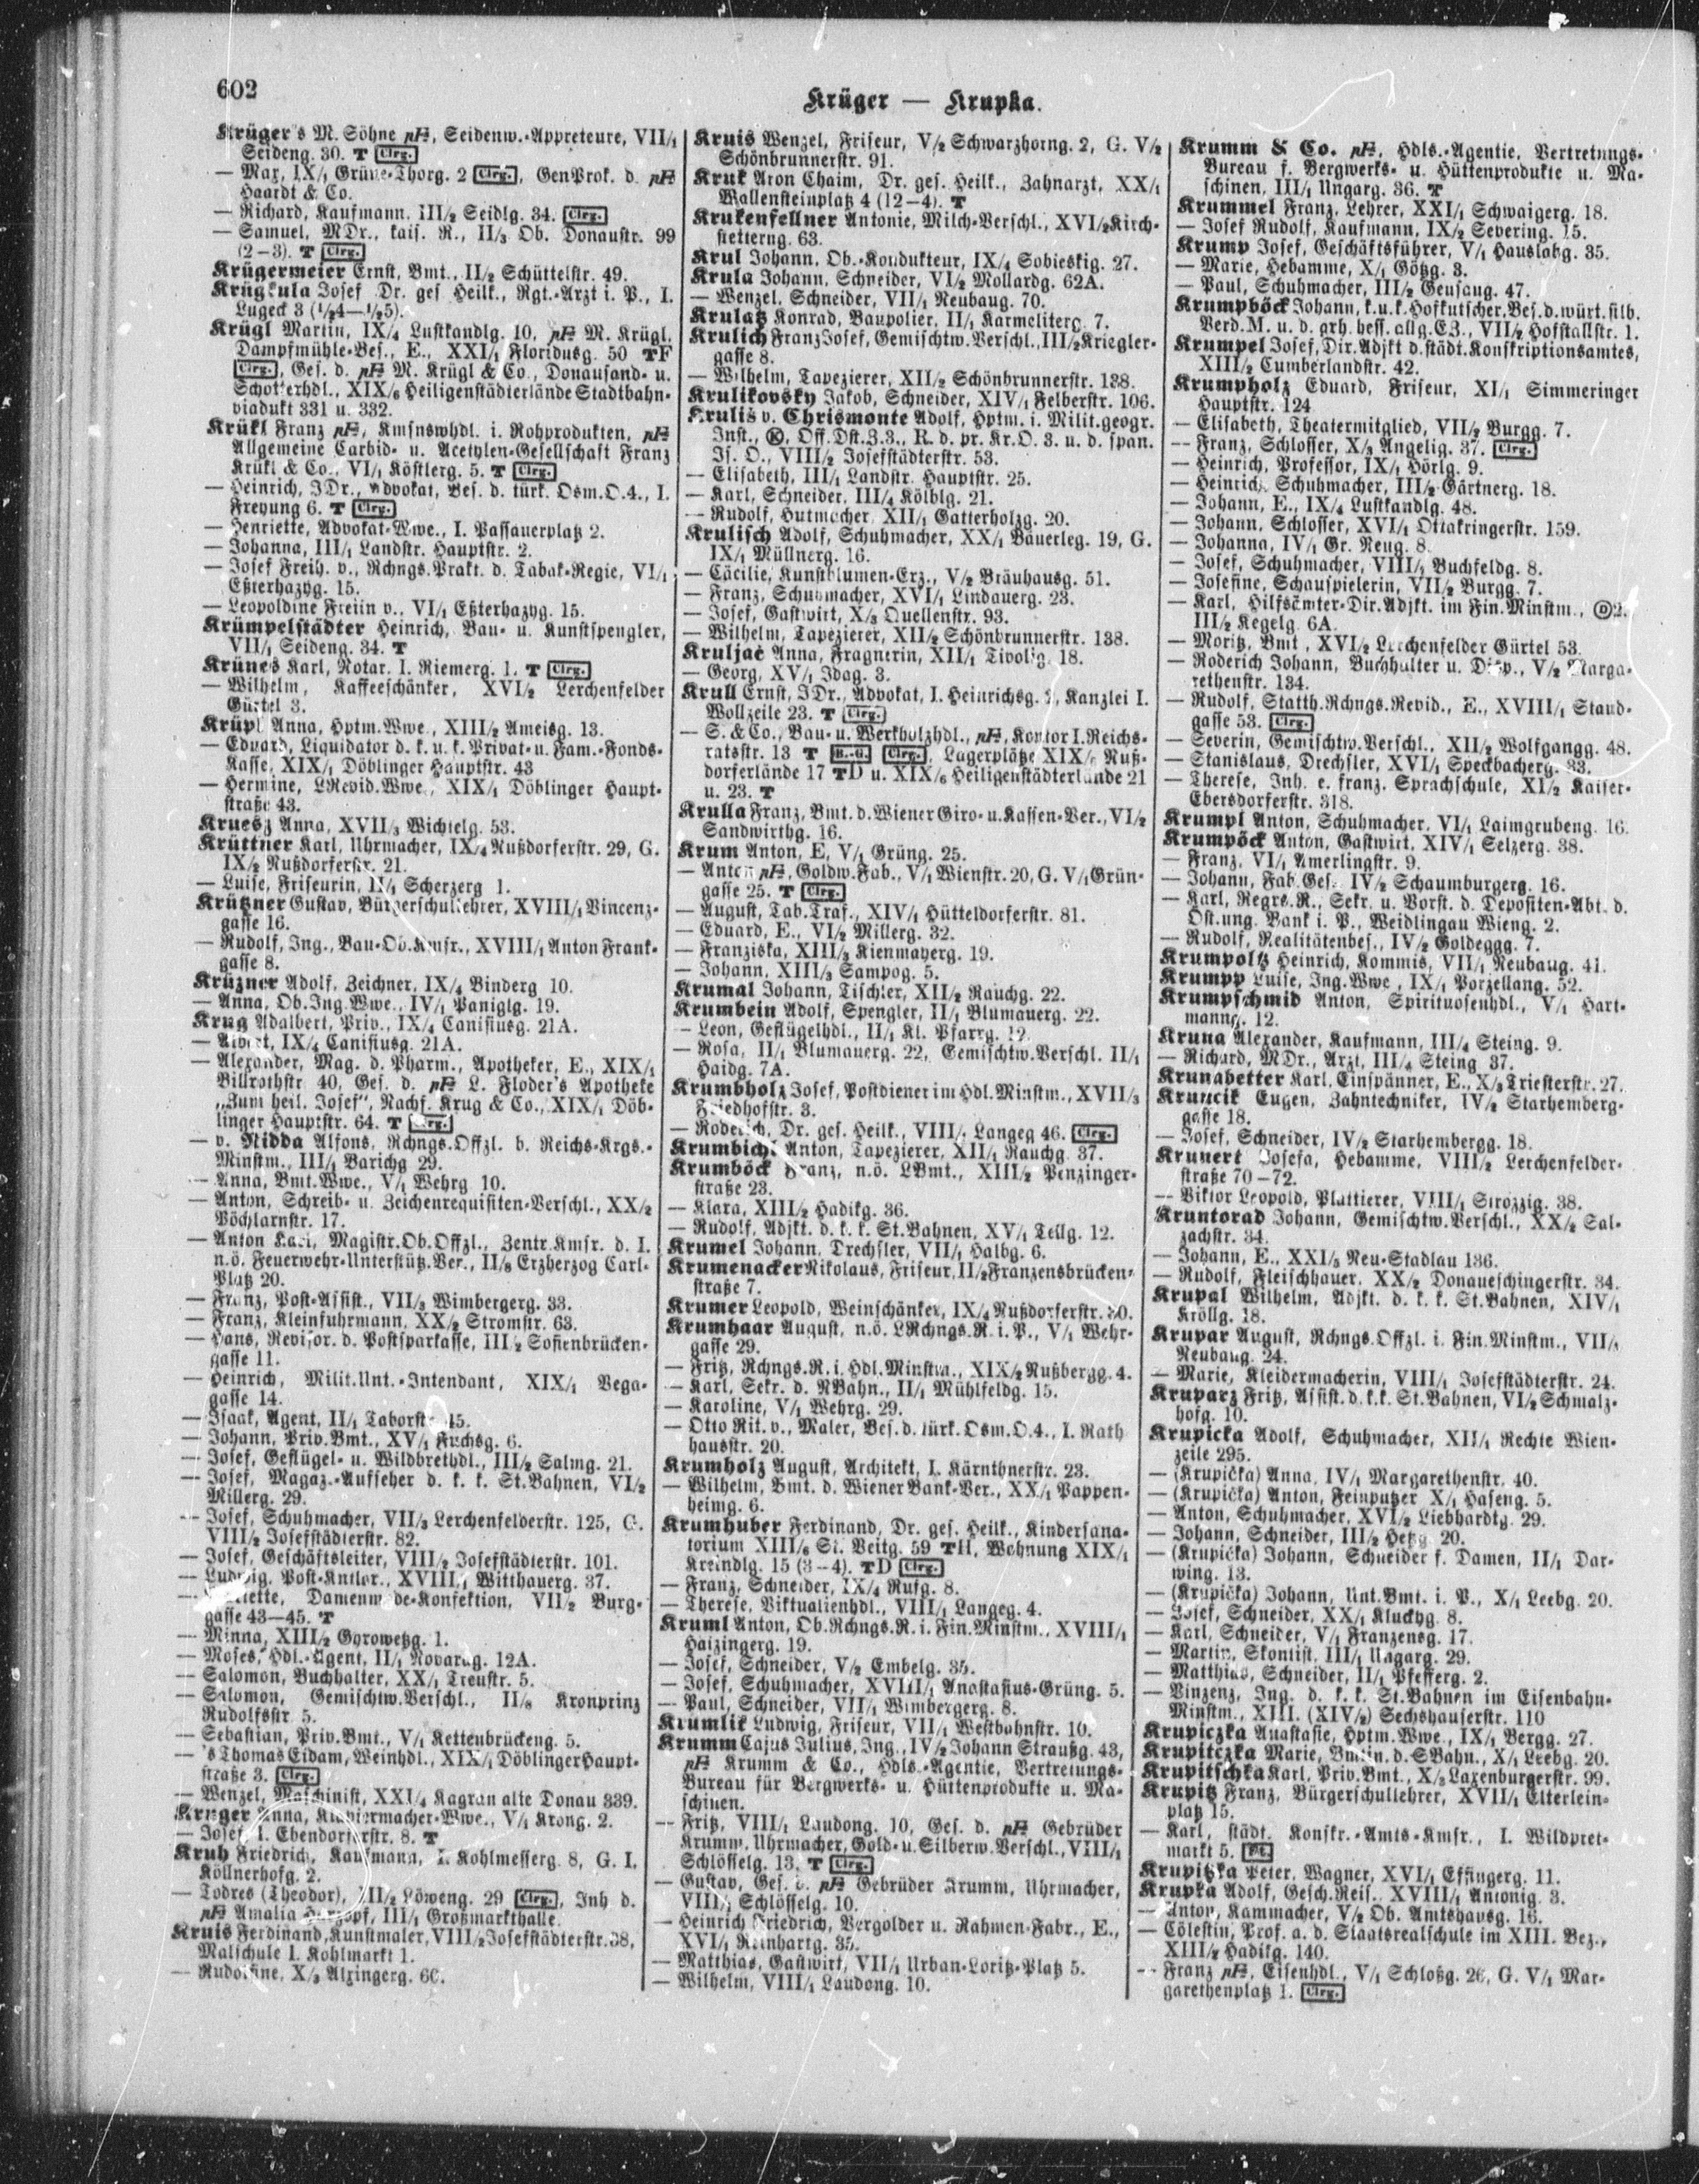 602
Krüger — Krupka.
Krüger's M. Söhne, Seidenw.-Appreteure, VII/1
Seideng. 30. T Clrg.
— Max, IX/1 Grüne-Thorg. 2 Clrg., GenProk. d.
Haardt & Co.
— Richard, Kaufmann, III/2 Seidlg. 34. Clrg.
— Samuel, MDr., kais. R., II/3 Ob. Donaustr. 99
(2–3). T Clrg.
Krügermeier Ernst, Bmt., II/2 Schüttelstr. 49.
Krügkula Josef Dr. ges Heilk., Rgt.-Arzt i. P., I.
Lugeck 3 (1/24—1/25).
Krügl Martin, IX/4 Lustkandlg. 10, M. Krügl,
Dampfmühle-Bes., E., XXI/1 Floridusg. 50 TF
Clrg., Ges. d. M. Krügl & Co., Donausand- u.
Schotterhdl., XIX/6 Heiligenstädterlände Stadtbahn-
viadukt 331 u. 332.
Krükl Franz, Kmsnswhdl. i. Rohprodukten,
Allgemeine Carbid- u. Acetylen-Gesellschaft Franz
Krükl & Co., VI/1 Köstlerg. 5. T Clrg.
— Heinrich, JDr., Advokat, Bes. d. türk. Osm.O.4., I.
Freyung 6. T Clrg.
— Henriette, Advokat-Wwe., I. Passauerplatz 2.
— Johanna, III/1 Landstr. Hauptstr. 2.
— Josef Freih. v., Rchngs.Prakt. d. Tabak-Regie, VI/1
Eßterhazyg. 15.
— Leopoldine Freiin v., VI/1 Eßterhazyg. 15.
Krümpelstädter Heinrich, Bau- u. Kunstspengler,
VII/1 Seideng. 34. T
Krünes Karl, Notar. I. Riemerg. 1. T Clrg.
— Wilhelm, Kaffeeschänker, XVI/2 Lerchenfelder
Gürtel 3.
Krüpl Anna, Hptm.Wwe., XIII/2 Ameisg. 13.
— Eduard, Liquidator d. k. u. k. Privat- u. Fam.-Fonds-
Kasse, XIX/1 Döblinger Hauptstr. 43
— Hermine, LRevid.Wwe., XIX/1 Döblinger Haupt-
straße 43.
Kruesz Anna, XVII/3 Wichtelg. 53.
Krüttner Karl, Uhrmacher, IX/4 Nußdorferstr. 29, G.
IX/2 Nußdorferstr. 21.
— Luise, Friseurin, II/1 Scherzerg 1.
Krützner Gustav, Bürgerschullehrer, XVIII/1 Vincenz-
gasse 16.
— Rudolf, Ing., Bau-Ob.Kmsr., XVIII/1 Anton Frank-
gasse 8.
Krüzner Adolf, Zeichner, IX/4 Binderg 10.
— Anna, Ob.Ing.Wwe., IV/1 Paniglg. 19.
Krug Adalbert, Priv., IX/4 Canisiusg. 21A.
— Albert, IX/4 Canisiusg. 21A.
— Alexander, Mag. d. Pharm., Apotheker, E., XIX/1
Billrothstr 40, Ges. d. L. Floder's Apotheke
„Zum heil. Josef", Nachf. Krug & Co., XIX/1 Döb-
linger Hauptstr. 64. T Clrg.
— v. Nidda Alfons, Rchngs.Offzl. b. Reichs-Krgs.-
Minstm., III/1 Barichg 29.
— Anna, Bmt.Wwe., V/1 Wehrg 10.
— Anton, Schreib- u. Zeichenrequisiten-Verschl., XX/2
Pöchlarnstr. 17.
— Anton Karl, Magistr.Ob.Offzl., Zentr.Kmsr. d. I.
n.ö. Feuerwehr-Unterstütz.Ver., II/8 Erzherzog Carl-
Platz 20.
— Franz, Post-Assist., VII/3 Wimbergerg. 33.
— Franz, Kleinfuhrmann, XX/2 Stromstr. 63.
— Hans, Revisor. d. Postsparkasse, III/2 Sofienbrücken-
gasse 11.
— Heinrich, Milit.Unt.-Intendant, XIX/1 Vega-
gasse 14.
— Isaak, Agent, II/1 Taborstr 45.
— Johann, Priv.Bmt., XV/1 Fuchsg. 6.
— Josef, Geflügel- u. Wildbrethdl., III/2 Salmg. 21.
— Josef, Magaz.-Aufseher d. k. k. St.Bahnen, VI/2
Millerg. 29.
— Josef, Schuhmacher, VII/3 Lerchenfelderstr. 125, G.
VIII/2 Josefstädterstr. 82.
— Josef, Geschäftsleiter, VIII/2 Josefstädterstr. 101.
— Ludwig. Post-Kntlor., XVIII/1 Witthauerg. 37.
— Damenmode-Konfektion, VII/2 Burg-
gasse 43—45. T
— Minna, XIII/2 Gyrowetzg. 1.
— Moses, Hdl.-Agent, II/1 Novarag. 12A.
— Salomon, Buchhalter, XX/1 Treustr. 5.
— Salomon, Gemischtw.Verschl., II/8 Kronprinz
Rudolfsstr 5.
— Sebastian, Priv.Bmt., V/1 Kettenbrückeng. 5.
— 's Thomas Eidam, Weinhdl., XIX/1 Döblinger Haupt-
straße 3. Clrg.
— Wenzel, Maschinist, XXI/4 Kagran alte Donau 339.
Kruger Anna, Klaviermacher-Wwe., V/1 Krong. 2.
— Josef, I. Ebendorferstr. 8. T
Kruh Friedrich, Kaufmann, I. Kohlmesserg. 8, G. I.
Köllnerhofg. 2.
— Todres (Theodor), VII/2 Löweng. 29 Clrg., Inh d.
Amalia III/1 Großmarkthalle.
Kruis Ferdinand, Kunstmaler, VIII/2 Josefstädterstr. 38,
Malschule I. Kohlmarkt 1.
— Rudolfine, X/3 Alxingerg. 60.
Kruis Wenzel, Friseur, V/2 Schwarzhorng. 2, G. V/2
Schönbrunnerstr. 91.
Kruk Aron Chaim, Dr. ges. Heilk., Zahnarzt, XX/1
Wallensteinplatz 4 (12–4). T
Krukenfellner Antonie, Milch-Verschl., XVI/2 Kirch-
stetterng. 63.
Krul Johann, Ob.-Kondukteur, IX/4 Sobieskig. 27.
Krula Johann, Schneider, VI/2 Mollardg. 62A.
— Wenzel, Schneider, VII/1 Neubaug. 70.
Krulatz Konrad, Baupolier, II/1 Karmeliterg. 7.
Krulich Franz Josef, Gemischtw.Verschl., III/2 Kriegler-
gasse 8.
— Wilhelm, Tapezierer, XII/2 Schönbrunnerstr. 138.
Krulikovsky Jakob, Schneider, XIV/1 Felberstr. 106.
Krulis v. Chrismonte Adolf, Hptm. i. Milit.geogr.
Inst., K, Off.Dst.Z.3., R. d. pr. Kr.O. 3. u. d. span.
Is. O., VIII/2 Josefstädterstr. 53.
— Elisabeth, III/1 Landstr. Hauptstr. 25.
— Karl, Schneider, III/4 Kölblg. 21.
— Rudolf, Hutmacher, XII/1 Gatterholzg. 20.
Krulisch Adolf, Schuhmacher, XX/1 Bäuerleg. 19, G.
IX/1 Müllnerg. 16.
— Cäcilie, Kunstblumen-Erz., V/2 Bräuhausg. 51.
— Franz, Schuhmacher, XVI/1 Lindauerg. 23.
— Josef, Gastwirt, X/3 Quellenstr. 93.
— Wilhelm, Tapezierer, XII/2 Schönbrunnerstr. 138.
Kruljac Anna, Fragnerin, XII/1 Tivolig. 18.
— Georg, XV/1 Idag. 3.
Krull Ernst, JDr., Advokat, I. Heinrichsg. Kanzlei I.
Wollzeile 23. T Clrg.
— S. & Co., Bau- u. Werkholzhdl., Kontor I. Reichs-
ratsstr. 13 T B.-G. Clrg., Lagerplätze XIX/6 Nuß-
dorferlände 17 TD u. XIX/6 Heiligenstädterlände 21
u. 23. T
Krulla Franz, Bmt. d. Wiener Giro- u. Kassen-Ver., VI/2
Sandwirthg. 16.
Krum Anton, E, V/1 Grüng. 25.
— Anton, Goldw.Fab., V/1 Wienstr. 20, G. V/1 Grün-
gasse 25. T Clrg.
— August, Tab.Traf., XIV/1 Hütteldorferstr. 81.
— Eduard, E., VI/2 Millerg. 32.
— Franziska, XIII/3 Kienmayerg. 19.
— Johann, XIII/3 Sampog. 5.
Krumal Johann, Tischler, XII/2 Rauchg. 22.
Krumbein Adolf, Spengler, II/1 Blumauerg. 22.
— Leon, Geflügelhdl., II/1 Kl. Pfarrg. 12.
— Rosa, II/1 Blumauerg. 22, Gemischtw.Verschl. II/1
Haidg. 7A.
Krumbholz Josef, Postdiener im Hdl.Minstm., XVII/3
Friedhofstr. 3.
— Roderich, Dr. ges. Heilk., VIII/1 Langeg 46. Clrg.
Krumbichl Anton, Tapezierer, XII/1 Rauchg. 37.
Krumböck Franz, n.ö. LBmt., XIII/2 Penzinger-
straße 23.
— Klara, XIII/2 Hadikg. 36.
— Rudolf, Adjkt. d. k. k. St.Bahnen, XV/1 Tellg. 12.
Krumel Johann, Drechsler, VII/1 Halbg. 6.
Krumenacker Nikolaus, Friseur, II/2 Franzensbrücken-
straße 7.
Krumer Leopold, Weinschänker, IX/4 Nußdorferstr.
Krumhaar August, n.ö. LRchngs.R. i. P., V/1 Wehr-
gasse 29.
— Fritz, Rchngs.R. i. Hdl.Minstm., XIX/2 Nußbergg. 4.
— Karl, Sekr. d. NBahn., II/1 Mühlfeldg. 15.
— Karoline, V/1 Wehrg. 29.
— Otto Rit. v., Maler, Bes. d. türk. Osm.O.4., I. Rath
hausstr. 20.
Krumholz August, Architekt, I. Kärnthnerstr. 23.
— Wilhelm, Bmt. d. Wiener Bank-Ver., XX/1 Pappen-
heimg. 6.
Krumhuber Ferdinand, Dr. ges. Heilk., Kindersana-
torium XIII/6 St. Veitg. 59 TH, Wohnung XIX/1
Kreindlg. 15 (3–4). TD Clrg.
— Franz, Schneider, IX/4 Rufg. 8.
— Therese, Viktualienhdl., VIII/1 Langeg. 4.
Kruml Anton, Ob.Rchngs.R. i. Fin.Minstm., XVIII/1
Haizingerg. 19.
— Josef, Schneider, V/2 Embelg. 35.
— Josef, Schuhmacher, XVIII/1 Anastasius-Grüng. 5.
— Paul, Schneider, VII/1 Wimbergerg. 8.
Krumlik Ludwig, Friseur, VII/1 Westbahnstr. 10.
Krumm Cajus Julius, Ing., IV/2 Johann Straußg. 43,
Krumm & Co., Hdls.-Agentie, Vertretungs-
Bureau für Bergwerks- u. Hüttenprodukte u. Ma-
schinen.
— Fritz, VIII/1 Laudong. 10, Ges. d. Gebrüder
Krumm, Uhrmacher, Gold- u. Silberw.Verschl., VIII/1
Schlösselg. 13. T Clrg.
— Gustav, Ges. d. Gebrüder Krumm, Uhrmacher,
VIII/1 Schlösselg. 10.
— Heinrich Friedrich, Vergolder u. Rahmen-Fabr., E.,
XVI/1 Reinhartg. 35.
— Matthias, Gastwirt, VII/1 Urban-Loritz-Platz 5.
— Wilhelm, VIII/1 Laudong. 10.
Krumm & Co., Hdls.-Agentie, Vertretungs-
Bureau f. Bergwerks- u. Hüttenprodukte u. Ma-
schinen, III/1 Ungarg. 36. T
Krummel Franz, Lehrer, XXI/1 Schwaigerg. 18.
— Josef Rudolf, Kaufmann, IX/2 Severing. 15.
Krump Josef, Geschäftsführer, V/1 Hauslabg. 35.
— Marie, Hebamme, X/1 Götzg. 3.
— Paul, Schuhmacher, III/2 Geusaug. 47.
Krumpböck Johann, k.u.k. Hofkutscher, Bes. d. würt. silb.
Verd.M. u. d. grh. hess. allg. EZ., VII/2 Hofstallstr. 1.
Krumpel Josef, Dir.Adjkt d. städt. Konskriptionsamtes,
XIII/2 Cumberlandstr. 42.
Krumpholz Eduard, Friseur, XI/1 Simmeringer
Hauptstr. 124
— Elisabeth, Theatermitglied, VII/2 Burgg. 7.
— Franz, Schlosser, X/3 Angelig. 37. Clrg.
— Heinrich, Professor, IX/1 Hörlg. 9.
— Heinrich, Schuhmacher, III/2 Gärtnerg. 18.
— Johann, E., IX/4 Lustkandlg. 48.
— Johann, Schlosser, XVI/1 Ottakringerstr. 159.
— Johanna, IV/1 Gr. Neug. 8.
— Josef, Schuhmacher, VIII/1 Buchfeldg. 8.
— Josefine, Schauspielerin, VII/2 Burgg. 7.
— Karl, Hilfsämter-Dir.Adjkt. im Fin.Minstm., D2.
III/2 Kegelg. 6A.
— Moritz, Bmt, XVI/2 Lerchenfelder Gürtel 53.
— Roderich Johann, Buchhalter u. Disp., V/2 Marga-
rethenstr. 134.
— Rudolf, Statth.Rchngs.Revid., E., XVIII/1 Staud-
gasse 53. Clrg.
— Severin, Gemischtw.Verschl., XII/2 Wolfgangg. 48.
— Stanislaus, Drechsler, XVI/1 Speckbacherg. 33.
— Therese, Inh. e. franz. Sprachschule, XI/2 Kaiser-
Ebersdorferstr. 318.
Krumpl Anton, Schuhmacher, VI/1 Laimgrubeng. 16.
Krumpöck Anton, Gastwirt, XIV/1 Selzerg. 38.
— Franz, VI/1 Amerlingstr. 9.
— Johann, Fab.Ges. IV/2 Schaumburgerg. 16.
— Karl, Regrs.R., Sekr. u. Vorst. d. Depositen-Abt. d.
Öst.ung. Bank i. P., Weidlingau Wieng. 2.
— Rudolf, Realitätenbes., IV/2 Goldeggg. 7.
Krumpoltz Heinrich, Kommis, VII/1 Neubaug. 41.
Krumpp Luise, Ing.Wwe, IX/1 Porzellang. 52.
Krumpschmid Anton, Spirituosenhdl., V/1 Hart-
manng. 12.
Kruna Alexander, Kaufmann, III/4 Steing. 9.
— Richard, MDr., Arzt, III/4 Steing 37.
Krunabetter Karl, Einspänner, E., X/3 Triesterstr. 27.
Kruncik Eugen, Zahntechniker, IV/2 Starhemberg-
gasse 18.
— Josef, Schneider, IV/2 Starhembergg. 18.
Krunert Josefa, Hebamme, VIII/2 Lerchenfelder-
straße 70–72.
— Viktor Leopold, Plattierer, VIII/1 Strozzig. 38.
Kruntorad Johann, Gemischtw.Verschl., XX/2 Sal-
zachstr. 34.
— Johann, E., XXI/5 Neu-Stadlau 136.
— Rudolf, Fleischhauer, XX/2 Donaueschingerstr. 34.
Krupal Wilhelm, Adjkt. d. k. k. St.Bahnen, XIV/1
Kröllg. 18.
Krupar August, Rchngs.Offzl. i. Fin.Minstm., VII/1
Neubaug. 24.
— Marie, Kleidermacherin, VIII/1 Josefstädterstr. 24.
Kruparz Fritz, Assist. d. k. k. St.Bahnen, VI/2 Schmalz-
hofg. 10.
Krupicka Adolf, Schuhmacher, XII/1 Rechte Wien-
zeile 295.
— (Krupička) Anna, IV/1 Margarethenstr. 40.
— (Krupička) Anton, Feinputzer X/1 Haseng. 5.
— Anton, Schuhmacher, XVI/2 Liebhardtg. 29.
— Johann, Schneider, III/2 Hetzg. 20.
— (Krupička) Johann, Schneider f. Damen, II/1 Dar-
wing. 13.
— (Krupička) Johann, Unt.Bmt. i. P., X/1 Leebg. 20.
— Josef, Schneider, XX/1 Kluckyg. 8.
— Karl, Schneider, V/1 Franzensg. 17.
— Martin, Skontist, III/1 Ungarg. 29.
— Matthias, Schneider, II/1 Pfefferg. 2.
— Vinzenz, Ing. d. k. k. St.Bahnen im Eisenbahn-
Minstm., XIII. (XIV/2) Sechshauserstr. 110
Krupiczka Anastasie, Hptm.Wwe., IX/1 Bergg. 27.
Krupitczka Marie, Bmtin. d. SBahn., X/1 Leebg. 20.
Krupitschka Karl, Priv.Bmt., X/3 Laxenburgerstr. 99.
Krupitz Franz, Bürgerschullehrer, XVII/1 Elterlein-
platz 15.
— Karl, städt. Konskr.-Amts-Kmsr., I. Wildpret-
markt 5.
Krupitzka Peter, Wagner, XVI/1 Effingerg. 11.
Krupka Adolf, Gesch.Reis., XVIII/1 Antonig. 3.
— Anton, Kammacher, V/2 Ob. Amtshausg. 16.
— Cölestin, Prof. a. d. Staatsrealschule im XIII. Bez.,
XIII/2 Hadikg. 140.
— Franz, Eisenhdl., V/1 Schloßg. 26, G. V/1 Mar-
garethenplatz 1. Clrg.